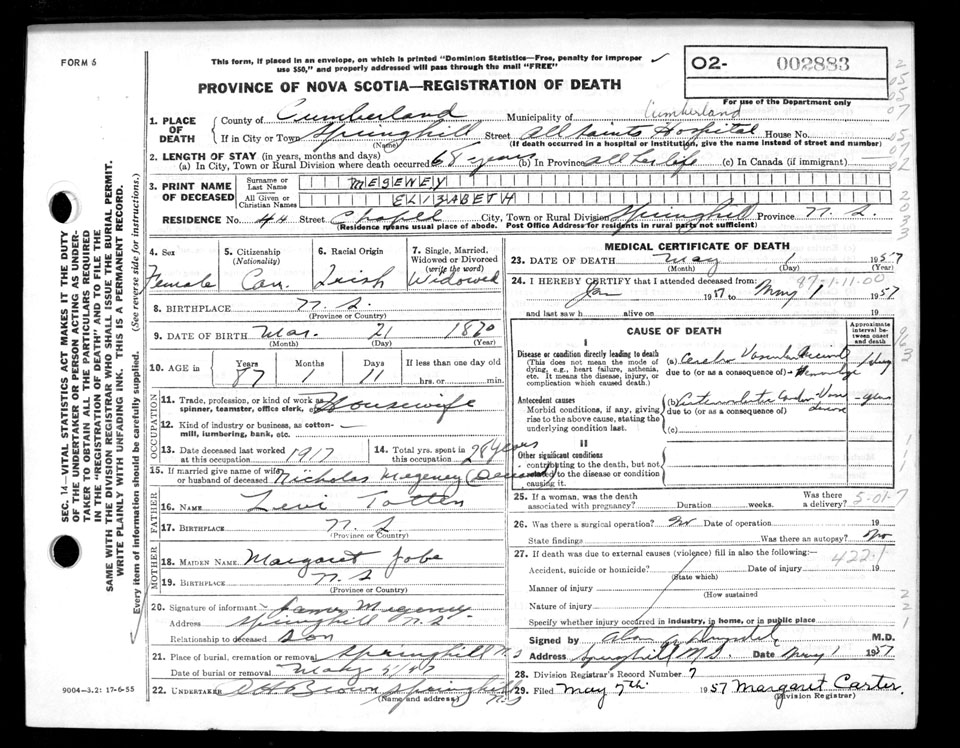 FORM 6
This form, if placed in an envelope, on which is printed "Dominion Statistics—Free, penalty for improper
use $50," and properly addressed will pass through the mail "FREE"
O2- 002883
For use of the Department only
PROVINCE OF NOVA SCOTIA—REGISTRATION OF DEATH
1. PLACE OF DEATH County of Cumberland Municipality of Cumberland
If in City or Town Springhill Street All Saints Hospital House No.
(Name) (If death occurred in a hospital or institution, give the name instead of street and number)
2. LENGTH OF STAY (in years, months and days)
(a) In City, Town or Rural Division where death occurred 68 years (b) In Province All her life (c) In Canada (if immigrant)
3. PRINT NAME OF DECEASED Surname or Last Name MEGENEY
All Given or Christian Names ELIZABETH
RESIDENCE No. 44 Street Chapel City, Town or Rural Division Springhill Province N.S.
(Residence means usual place of abode. Post Office Address for residents in rural parts not sufficient)
4. Sex Female
5. Citizenship (Nationality) Can.
6. Racial Origin Irish
7. Single, Married, Widowed or Divorced (write the word) Widowed
8. BIRTHPLACE N.S.
(Province or Country)
9. DATE OF BIRTH Mar. 21 1870
(Month) (Day) (Year)
10. AGE in Years 87 Months 1 Days 11 If less than one day old
hrs. or min.
OCCUPATION
11. Trade, profession, or kind of work as spinner, teamster, office clerk, etc. Housewife
12. Kind of industry or business, as cotton-mill, lumbering, bank, etc. —
13. Date deceased last worked at this occupation 1917
14. Total yrs. spent in this occupation 28 years
15. If married give name of wife or husband of deceased Nicholas Megeney
FATHER
16. NAME Levi Totten
17. BIRTHPLACE N.S
(Province or Country)
MOTHER
18. MAIDEN NAME Margaret Jobe
19. BIRTHPLACE N.S
(Province or Country)
20. Signature of informant James Megeney
Address Springhill N.S.
Relationship to deceased Son
21. Place of burial, cremation or removal Springhill N.S
Date of burial or removal May
22. UNDERTAKER Brown Springhill N.S
(Name and address)
MEDICAL CERTIFICATE OF DEATH
23. DATE OF DEATH May 1 1957
(Month) (Day) (Year)
24. I HEREBY CERTIFY that I attended deceased from:
87-1-11-00
Jan 1957 to May 1 1957
and last saw h alive on 19
CAUSE OF DEATH
Approximate interval between onset and death
I
Disease or condition directly leading to death
(This does not mean the mode of dying, e.g., heart failure, asthenia, etc. It means the disease, injury, or complication which caused death.)
(a) Cerebro Vascular
due to (or as a consequence of)
Antecedent causes
Morbid conditions, if any, giving rise to the above cause, stating the underlying condition last.
(b)
due to (or as a consequence of)
(c)
II
Other significant conditions
contributing to the death, but not related to the disease or condition causing it.
25. If a woman, was the death associated with pregnancy? Duration weeks. Was there a delivery?
5-01-7
26. Was there a surgical operation? No Date of operation 19
State findings Was there an autopsy? No
27. If death was due to external causes (violence) fill in also the following:—
422.1
Accident, suicide or homicide? Date of injury 19
(State which)
Manner of injury
(How sustained
Nature of injury
Specify whether injury occurred in industry, in home, or in public place
Signed by M.D.
Address Springhill N.S. Date May 1 1957
28. Division Registrar's Record Number 7
29. Filed May 7th 1957 Margaret Carter.
(Division Registrar)
SEC. 14—VITAL STATISTICS ACT MAKES IT THE DUTY
OF THE UNDERTAKER OR PERSON ACTING AS UNDER-
TAKER TO OBTAIN ALL THE PARTICULARS REQUIRED
IN THE "REGISTRATION OF DEATH" AND TO FILE THE
SAME WITH THE DIVISION REGISTRAR WHO SHALL ISSUE THE BURIAL PERMIT.
WRITE PLAINLY WITH UNFADING INK. THIS IS A PERMANENT RECORD.
Every item of information should be carefully supplied. (See reverse side for instructions.)
9004—3.21: 17-6-55